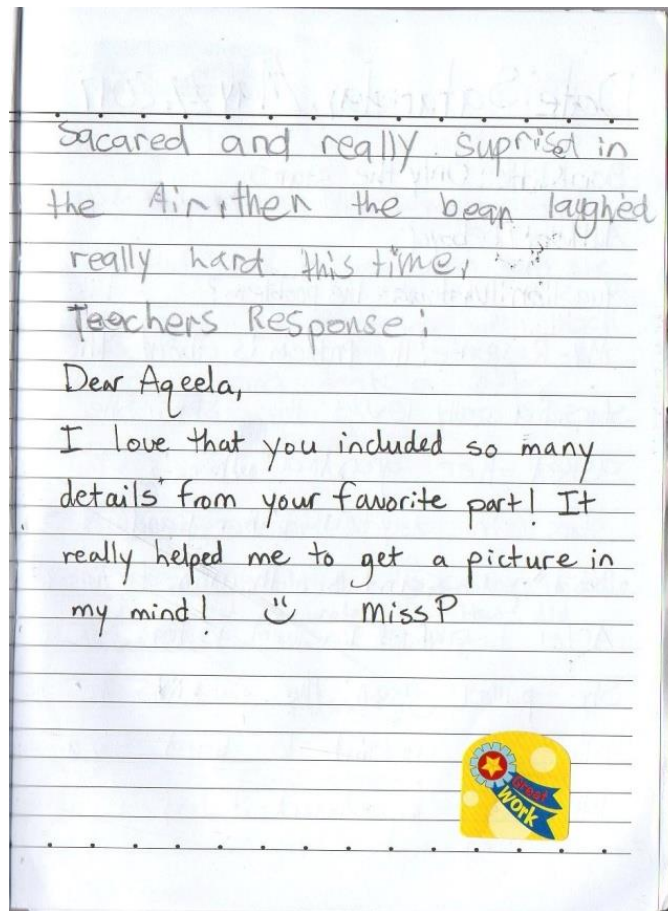 Sacared and really suprisd in
the Air, then the bean laughed
really hard this time,
Teachers Response:
Dear Aqeela,
I love that you included so many
details from your favorite part! It
really helped me to get a picture in
my mind! Miss P
Great
Work